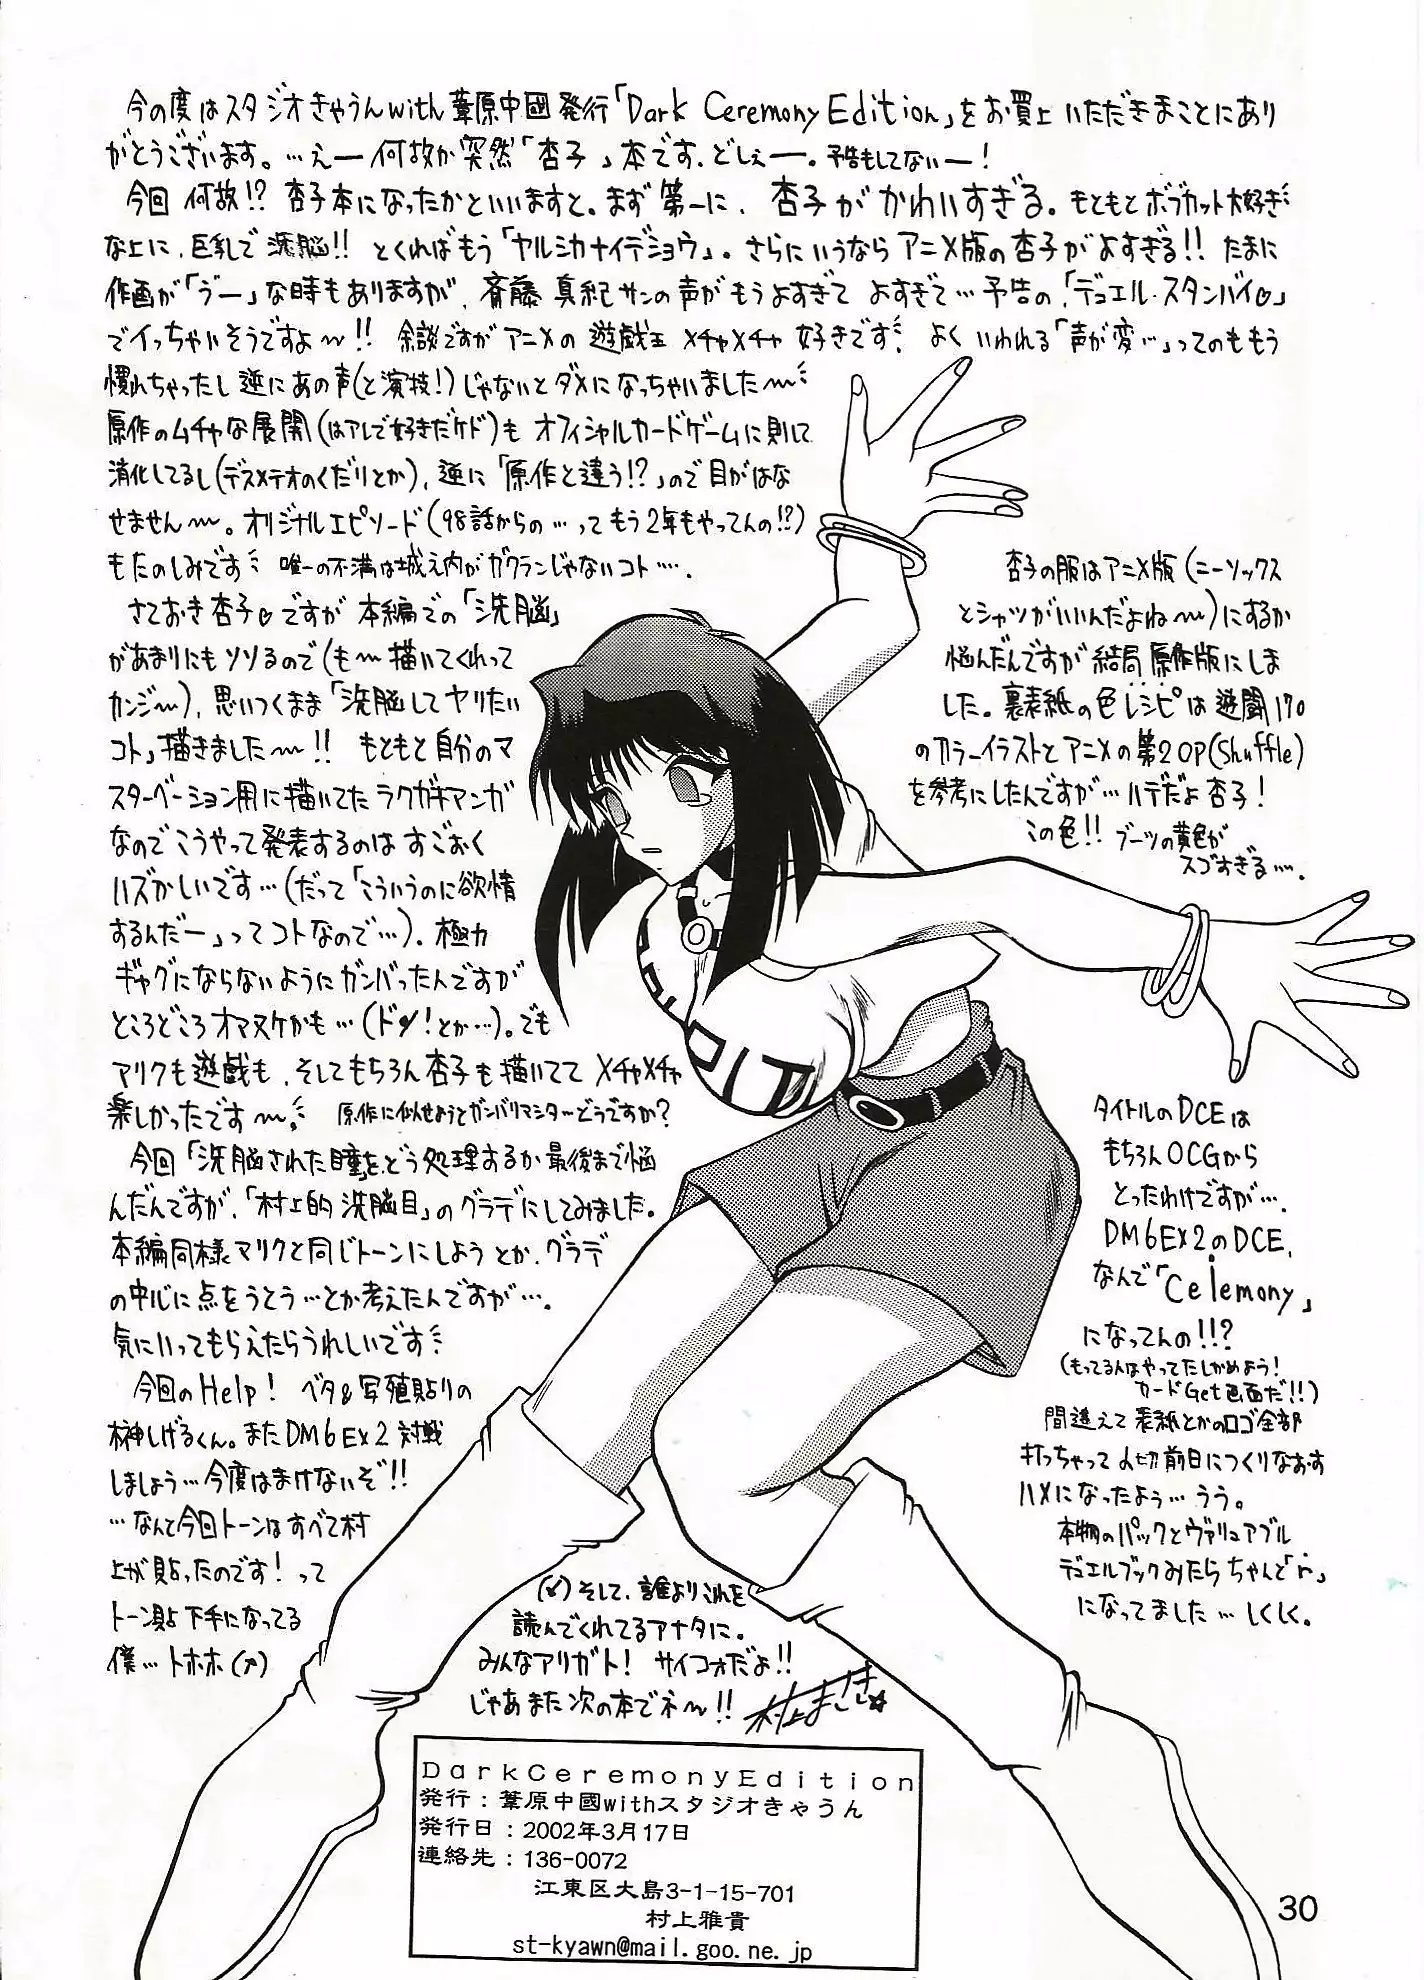 今の度はスタジオきゃうんwith葦原中國発行「Dark Ceremony Edition」をお買上いただきまことにあり
がとうございます。…えー何故か突然「杏子」本です、どしぇー。予告もしてないー!
今回何故!? 杏子本になったかといいますと。まず第一に、杏子がかわいすぎる。もともとボブカット大好き
な上に、巨乳で洗脳!! とくればもう「ヤルシカナイデショウ」。さらにいうならアニメ版の杏子がよすぎる!! たまに
作画が「うー」な時もありますが、斉藤真紀サンの声がもうよすぎてよすぎて…予告の「デュエル・スタンバイ♡」
でイっちゃいそうですよ〜!! 余談ですがアニメの遊戯王メチャメチャ好きです。よくいわれる「声が変…」ってのももう
慣れちゃったし逆にあの声(と演技!)じゃないとダメになっちゃいました〜
原作のムチャな展開(はアレで好きだケド)もオフィシャルカードゲームに則して
消化してるし(デスメテオのくだりとか)、逆に「原作と違う!?」ので目がはな
せません〜。オリジナルエピソード(98話からの…ってもう2年もやってんの!?)
もたのしみです 唯一の不満は城之内がガクランじゃないコト….
さておき杏子♡ですが本編での「洗脳」
があまりにもソソるので(も〜描いてくれって
カンジ〜)、思いつくまま「洗脳してヤりたい
コト」描きました〜!! もともと自分のマ
スターベーション用に描いてたラクガキマンガ
なのでこうやって発表するのはすごおく
ハズかしいです…(だって「こういうのに欲情
するんだー」ってコトなので…)。極力
ギャグにならないようにガンバったんですが
ところどころオマヌケかも…(ドン!とか…)。でも
マリクも遊戯も、そしてもちろん杏子も描いてて メチャメチャ
楽しかったです〜。 原作に似せようとガンバリマシターどうですか?
今回「洗脳された瞳」をどう処理するか最後まで悩
んだんですが、「村上的洗脳目」のグラデにしてみました。
本編同様マリクと同じトーンにしようとか、グラデ
の中心に点をうとう…とか考えたんですが…。
気にいってもらえたらうれしいです
今回のHelp! ベタ&写殖貼りの
榊しげるくん。またDM6EX2対戦
しましょう…今度はまけないぞ!!
…なんて今回トーンはすべて村
上が貼ったのです!って
トーン貼り下手になってる
僕…トホホ
杏子の服はアニメ版(ニーソックス
とシャツがいいんだよね〜)にするか
悩んだんですが結局原作版にしま
した。裏表紙の色レシピは遊闘170
のカラーイラストとアニメの第2OP(Shuffle)
を参考にしたんですが…ハデだよ杏子!
この色!! ブーツの黄色が
スゴすぎる….
タイトルのDCEは
もちろんOCGから
とったわけですが…
DM6EX2のDCE、
なんで「Celemony」
になってんの!!?
(もってる人はやってたしかめよう!
カードGet画面だ!!)
間違えて表紙とかのロゴ全部
打っちゃって〆切前日につくりなおす
ハメになったよぅ…うう。
本物のパックとヴァリュアブル
デュエルブックみたらちゃんと「r」
になってました…しくしく。
そして、誰よりこれを
読んでくれてるアナタに。
みんなアリガト! サイコォだよ!!
じゃあまた次の本でネ〜!! 村上まさき☆
DarkCeremonyEdition
発行:葦原中國withスタジオきゃうん
発行日:2002年3月17日
連絡先:136-0072
江東区大島3-1-15-701
村上雅貴
st-kyawn@mail.goo.ne.jp
30